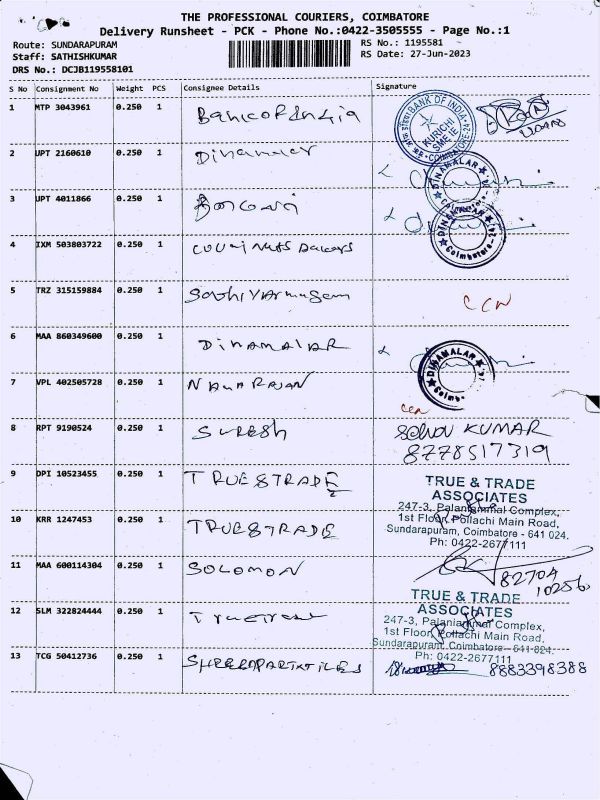 THE PROFESSIONAL COURIERS, COIMBATORE
Delivery Runsheet - PCK - Phone No.:0422-3505555 - Page No.:1
Route: SUNDARAPURAM
RS No.: 1195581
Staff: SATHISHKUMAR
RS Date: 27-Jun-2023
DRS No.: DCJB119558101
S No Consignment No Weight PCS Consignee Details Signature
1 MTP 3043961 0.250 1 Bank of India
BANK OF INDIA KURICHI SME IE COIMBATORE
2 UPT 2160610 0.250 1 Dinamalar
DINAMALAR Coimbatore
3 UPT 4011866 0.250 1
DINAMALAR Coimbatore-24
4 IXM 503803722 0.250 1
5 TRZ 315159884 0.250 1
6 MAA 860349600 0.250 1 DINAMALAR
DINAMALAR
7 VPL 402505728 0.250 1 NAGARAJAN
8 RPT 9190524 0.250 1 SURESH
KUMAR
8778517319
9 DPI 10523455 0.250 1 TRUE & TRADE
TRUE & TRADE
ASSOCIATES
247-3, Palaniammal Complex,
1st Floor, Pollachi Main Road,
Sundarapuram, Coimbatore - 641 024.
Ph: 0422-2677111
10 KRR 1247453 0.250 1 TRUE & TRADE
11 MAA 600114304 0.250 1 SOLOMON
82704
10256
12 SLM 322824444 0.250 1
TRUE & TRADE
ASSOCIATES
247-3, Palaniammal Complex,
1st Floor, Pollachi Main Road,
Sundarapuram, Coimbatore - 641 024.
Ph: 0422-2677111
13 TCG 50412736 0.250 1
8883398388